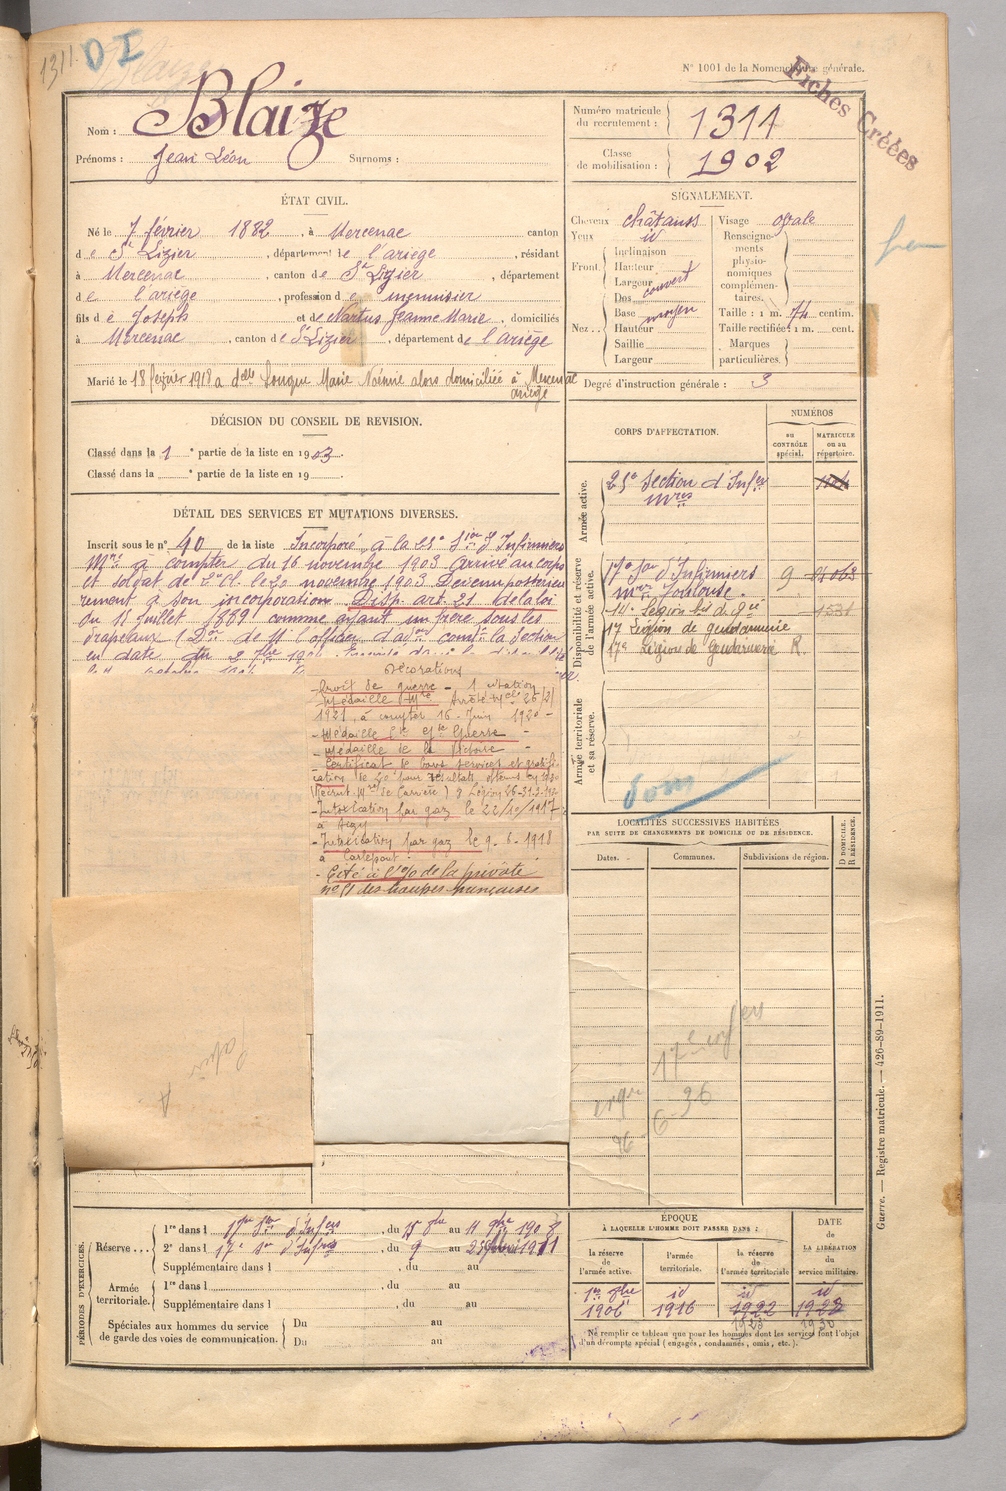 1311. DI
N° 1001 de la Nomenclature générale.
Fiches Créées
Nom : Blaize
Prénoms : Jean Léon Surnoms :
Numéro matricule du recrutement : 1311
Classe de mobilisation : 1902
ÉTAT CIVIL.
Né le 7 février 1882, à Mercenac canton
de St Lizier, département de l'ariège, résidant
à Mercenac, canton de St Lizier, département
de l'ariège, profession de menuisier
fils de Joseph et de Nartus Jeanne Marie, domiciliés
à Mercenac, canton de St Lizier, département de l'ariège
Marié le 18 février 1918 a delle Longue Marie Noémie alors domiciliée à Mercenac
ariège
SIGNALEMENT.
Cheveux châtains
Yeux id
Front Inclinaison
Hauteur
Largeur
Nez Dos couvert
Base moyen
Hauteur
Saillie
Largeur
Visage ovale
Renseignements physionomiques complémentaires.
Taille : 1 m. 74 centim.
Taille rectifiée : 1 m. cent.
Marques particulières.
Degré d'instruction générale : 3
DÉCISION DU CONSEIL DE REVISION.
Classé dans la 1e partie de la liste en 1903.
Classé dans la e partie de la liste en 19 .
CORPS D'AFFECTATION.
NUMÉROS
au CONTRÔLE spécial.
MATRICULE ou au répertoire.
Armée active.
25e Section d'Infers
mres
Disponibilité et réserve de l'armée active.
17e Son d'Infirmiers 9
mres Toulouse.
17 Légion de gendarmerie
17e Légion de Gendarmerie R.
Armée territoriale et sa réserve.
DÉTAIL DES SERVICES ET MUTATIONS DIVERSES.
Inscrit sous le n° 40 de la liste Incorporé à la 25e Son d'Infirmiers
Mres à compter du 16 novembre 1903 arrivé au corps
et soldat de 2e Cl. le 20 novembre 1903 Devenu postérieu
rement à son incorporation Disp. art. 21 de la loi
du 11 juillet 1889 comme ayant un frère sous les
drapeaux
en date du 2 7bre
Décorations
- Croix de guerre - 1 citation
- Médaille Mre Arrêté Mel 26/2/
1921, à compter 16 Juin 1920 -
- Médaille Cve Gde Guerre -
- Médaille de la Victoire -
- Certificat de bons services et gratifi-
cation de
- Intoxication par gaz le 22/10/1917
à
- Intoxication par gaz le 9-6-1918
à Carlepont -
- Cité à l'
LOCALITÉS SUCCESSIVES HABITÉES
PAR SUITE DE CHANGEMENTS DE DOMICILE OU DE RÉSIDENCE.
D DOMICILE. R RÉSIDENCE.
Dates. Communes. Subdivisions de région.
17e corps
6-36
Guerre. — Registre matricule. — 426-89-1911.
PÉRIODES D'EXERCICES.
Réserve ... 1re dans l 17e Son d'Infers, du 15 8bre au 11 9bre 1908
2e dans l 17e Son d'Infers, du 9 au 25 1911
Supplémentaire dans l , du au
Armée territoriale. 1re dans l , du au
Supplémentaire dans l , du au
Spéciales aux hommes du service de garde des voies de communication. Du au
Du au
ÉPOQUE
À LAQUELLE L'HOMME DOIT PASSER DANS :
DATE
de
LA LIBÉRATION
du
service militaire.
la réserve de l'armée active.
l'armée territoriale.
la réserve de l'armée territoriale
1er 8bre id id id
1906 1916 1922 1928
Ne remplir ce tableau que pour les hommes dont les services font l'objet
d'un décompte spécial (engagés, condamnés, omis, etc.).